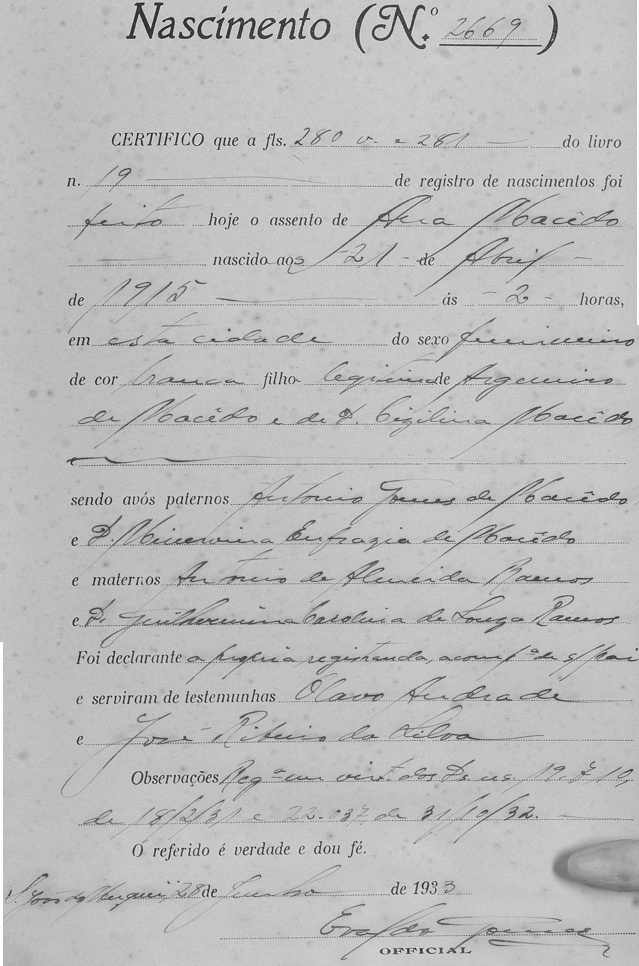 Nascimento (N.º 2669)
CERTIFICO que a fls. 280 v. e 281 do livro
n. 19 de registro de nascimentos foi
feito hoje o assento de Ana Macêdo
nascido aos 21 de Abril
de 1915 ás 2 horas,
em esta cidade do sexo feminino
de cor branca filho legitima de Argemiro
de Macêdo e de D. Macêdo
e
sendo avós paternos Antonio Gomes de Macêdo
e D. Minervina Eufrazia de Macêdo
e maternos Antonio de Almeida Ramos
e D. Guilhermina Carolina de Souza Ramos
Foi declarante a propria registanda, acomp.ª de s/ pai
e serviram de testemunhas Olavo Andrade
e José Ribeiro da Silva
Observações Reg.ª em virt. dos Ds. ns. 19.710,
de 18/2/31 e 22.037, de 31/10/32.
O referido é verdade e dou fé.
28 de Junho de 1933
Evaldo Gomes
OFFICIAL